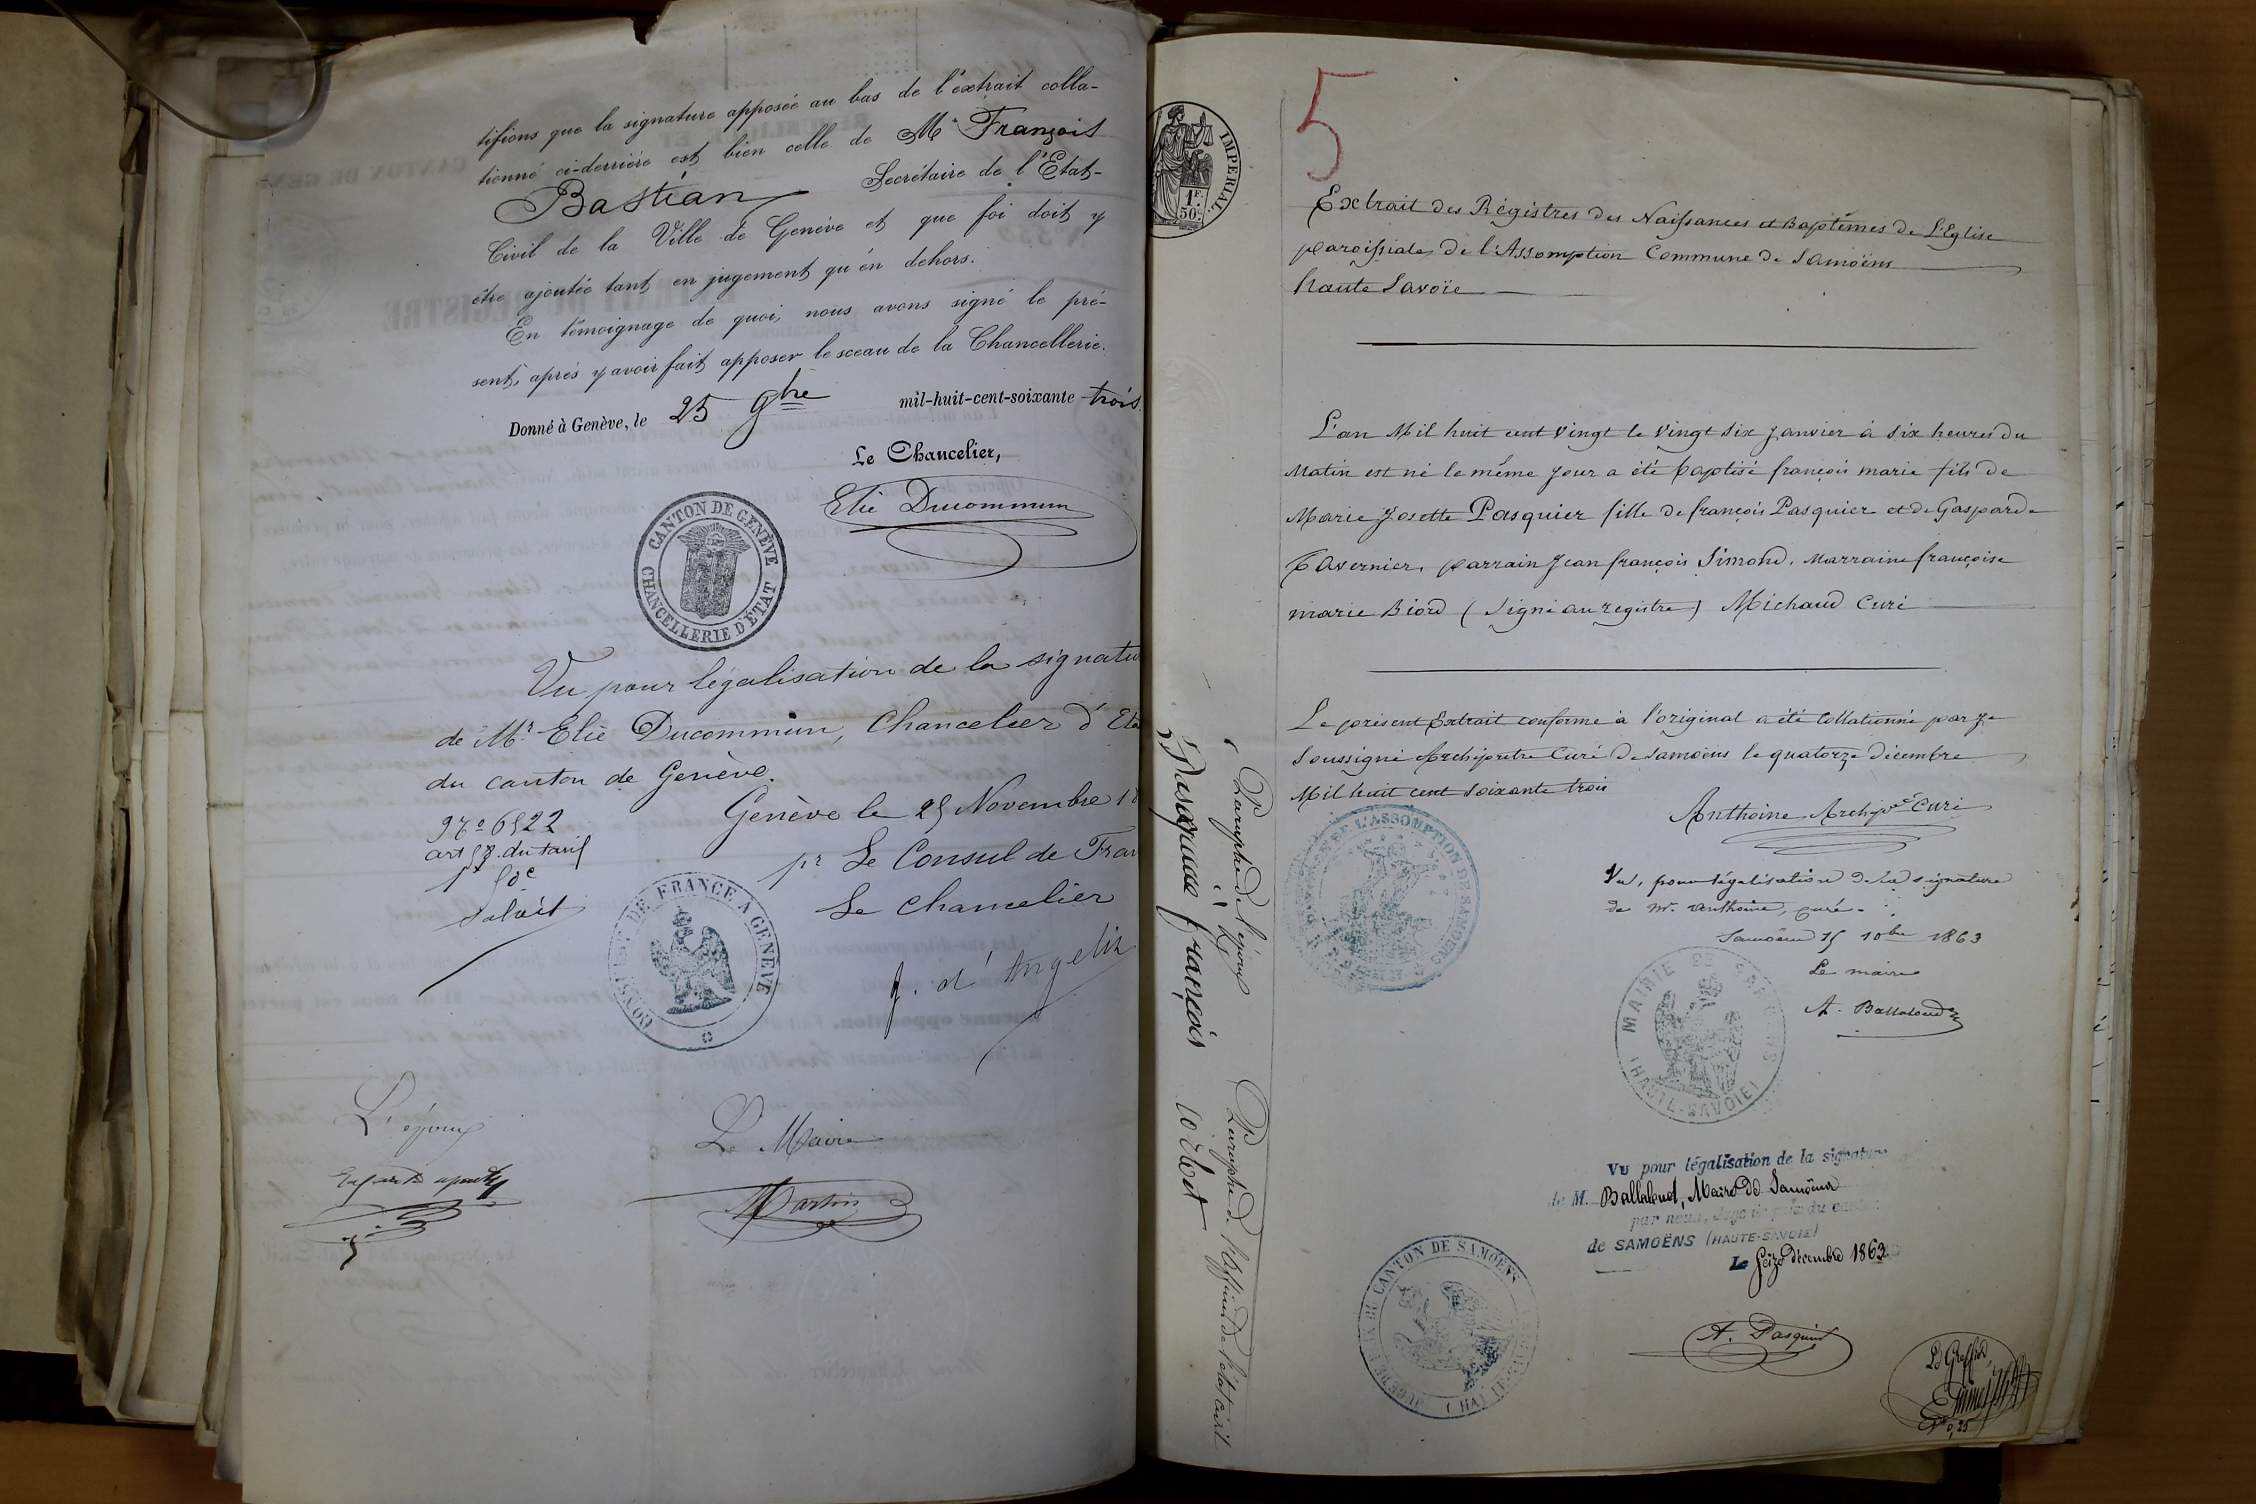 tifions que la signature apposée au bas de l'extrait colla-
tionné ci-derrière est bien celle de Mr. François
Bastian Secrétaire de l'Etat-
Civil de la Ville de Genève et que foi doit y
être ajoutée tant en jugement qu'en dehors.
En témoignage de quoi, nous avons signé le pré-
sent, après y avoir fait apposer le sceau de la Chancellerie.
Donné à Genève, le 25 9bre mil-huit-cent-soixante trois
Le Chancelier,
Elie Ducommun
CANTON DE GENÈVE
CHANCELLERIE D'ÉTAT
Vu pour légalisation de la signatu
de Mr. Elie Ducommun, Chancelier d'Eta
du canton de Genève.
Genève le 25 Novembre 18
No 6522
art 58. du tarif
pr Le Consul de Fran
Le Chancelier
J. d'Angelis
CONSULAT DE FRANCE A GENÈVE
L'époux
Le Maire
Martin
5
IMPERIAL
1F.
50c.
Extrait des Régistres des Naissances et Baptêmes de L'Eglise
paroissiale de l'Assomption Commune de Samoëns
haute Savoïe
L'an Mil huit cent vingt le vingt six janvier à six heures du
Matin est né le même jour a été baptisé françois marie fils de
Marie Josette Pasquier fille de françois Pasquier et de Gasparde
Tavernier, parrain Jean françois Simond. Marraine françoise
marie Biord (Signé au registre) Michaud Curé
Le présent Extrait conforme à l'original a été Collationné par je
Soussigné Archiprêtre Curé de Samoëns le quatorze décembre
Mil huit cent soixante trois
Anthoine Archiptre Curé
L'ASSOMPTION DE SAMOENS
Vu, pour légalisation de la signature
de Mr. Anthoine, curé.
Samoëns 15 10bre 1863
Le maire
A. Ballaloud
MAIRIE DE SAMOENS
(HAUTE-SAVOIE)
Vu pour légalisation de la signature
de M. Ballaloud, Maire de Samoëns
par nous, Juge de paix du canton
de SAMOËNS (HAUTE-SAVOIE)
Le Seize décembre 1863
A. Pasquier
Le Greffier
0,25
CANTON DE SAMOËNS
Paraphe de l'époux
Pasquier françois 10 Août
Paraphe de l'officier de l'état civil